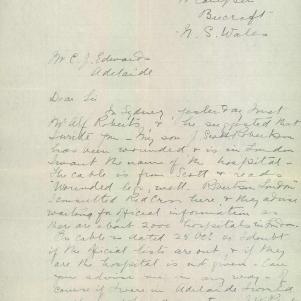 Beecroft
N. S. Wales
Mr C. J. Edwards
Adelaide
Dear Sir
In Sydney yesterday I met
Mr Alf Roberts, & he suggested that
I write you – My son Scott
has been wounded & is in London
I want the name of the hospital –
The cable is from Scott & reads
"Wounded leg, well. London"
I consulted Red Cross here, & they advise
waiting for official information as
there are about 2000 hospitals in London.
cable is dated 25 Oct. so I doubt
if the official lists are out & if they
are the hospital is not given – Can
you advise me in any way. Of
course if I were in Adelaide I would